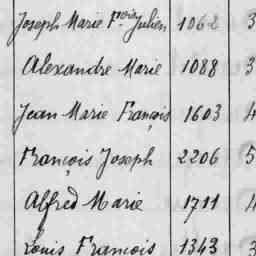 Joseph Marie Fçois Julien 1062 3
Alexandre Marie 1088 3
Jean Marie François 1603 4
François Joseph 2206 5
Alfred Marie 1711 4
Louis François 1343 3